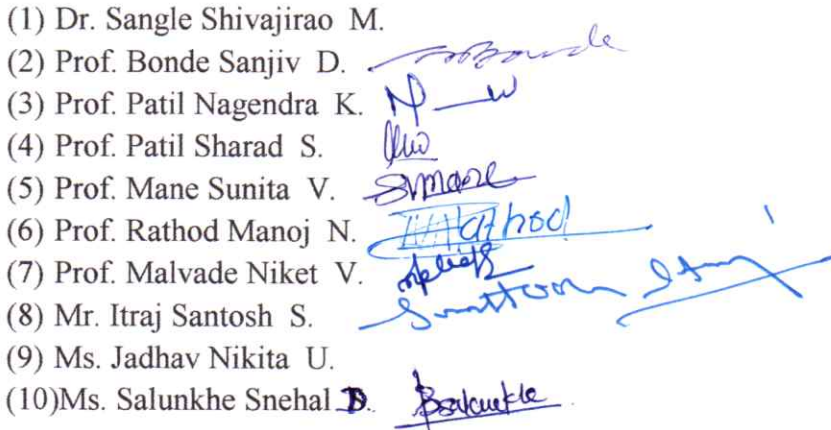 (1) Dr. Sangle Shivajirao M.
(2) Prof. Bonde Sanjiv D. Bonde
(3) Prof. Patil Nagendra K.
(4) Prof. Patil Sharad S.
(5) Prof. Mane Sunita V. SVmane
(6) Prof. Rathod Manoj N. Rathod
(7) Prof. Malvade Niket V.
(8) Mr. Itraj Santosh S.
(9) Ms. Jadhav Nikita U.
(10)Ms. Salunkhe Snehal D.